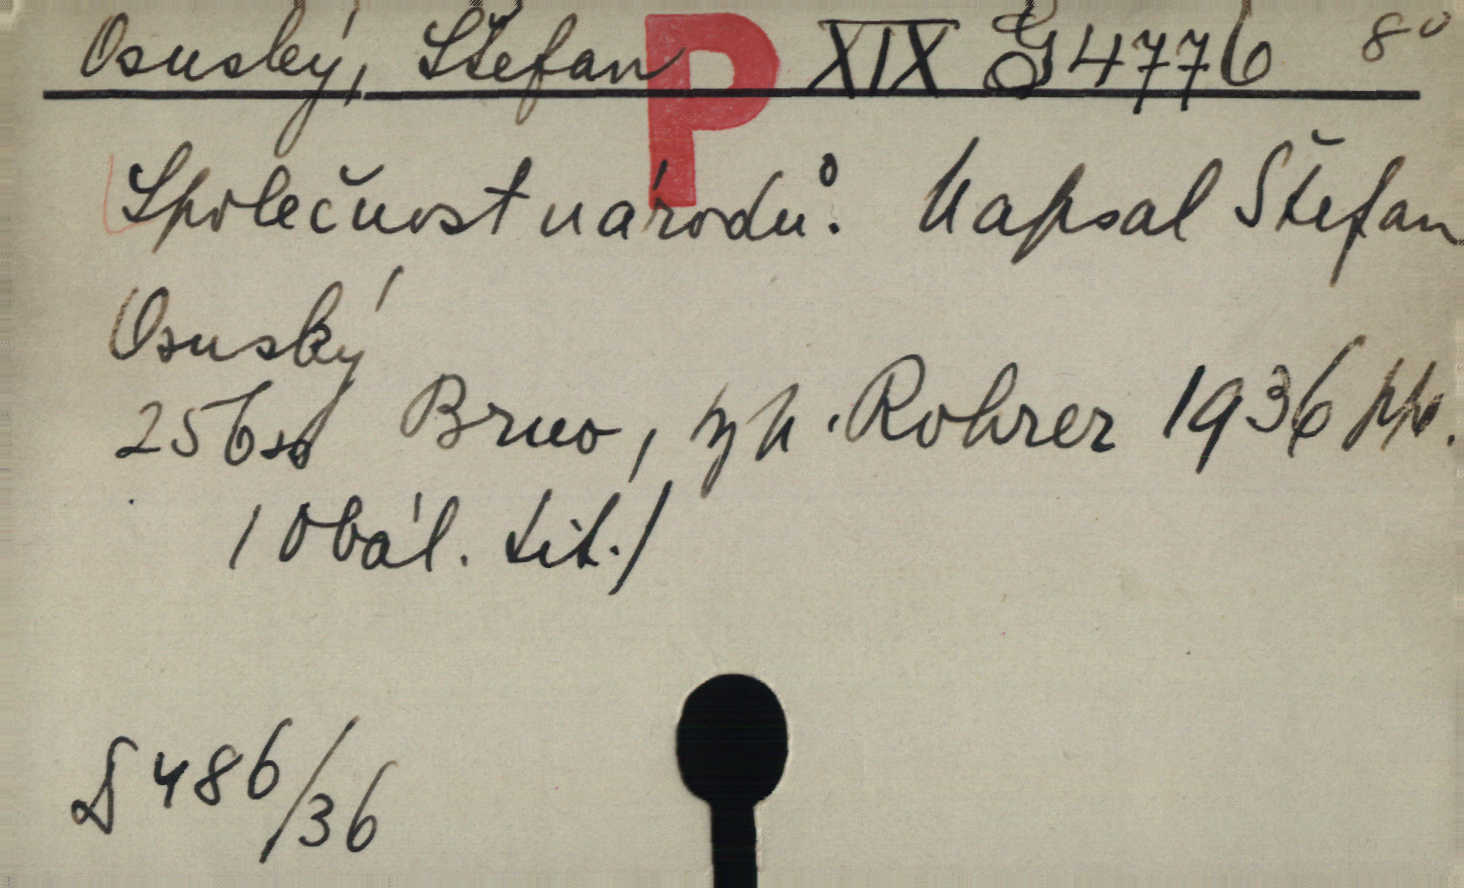 Osuský, Štefan P XIX G 4776 8°
Společnost národů. Napsal Štefan
Osuský
256 s Brno, Rohrer 1936
/Obál. tit./
486/36